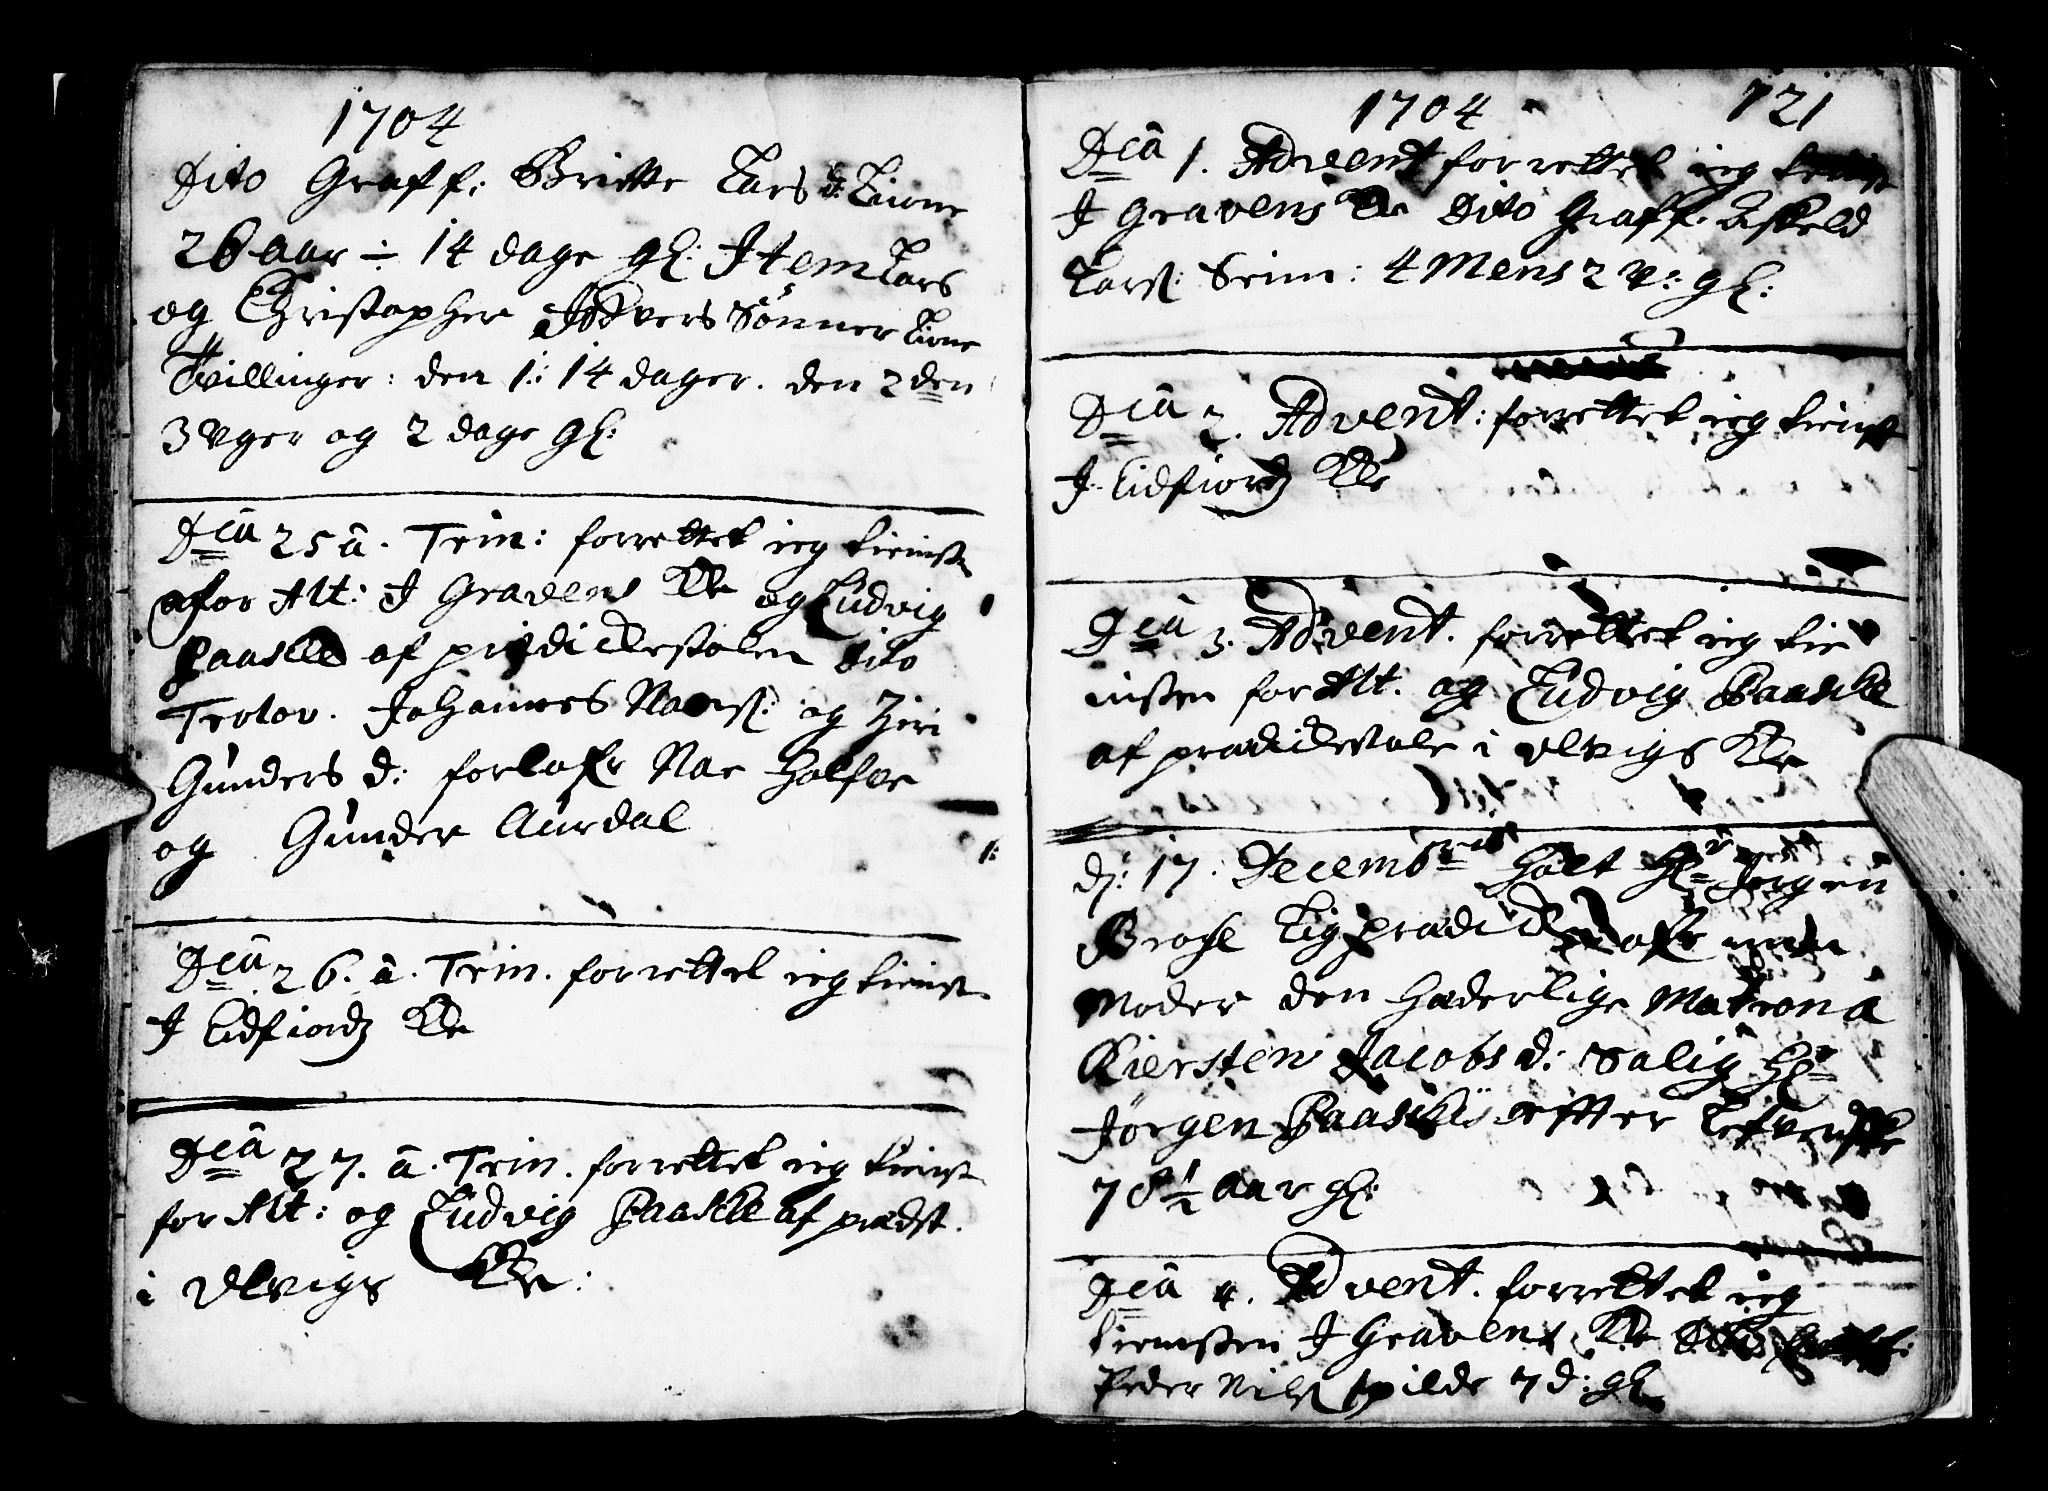 1704
Dito Graff: Britte Lars d: Lione
26 aar ÷ 14 dage gl: Item Lars
og Christopher Siøvers Sønner Lione
Tvillinger: den 1: 14 dager. den 2den
3 Uger og 2 dage gl:
Dca 25 à. Trin: forrettet ieg tienisten
for Alt: I Gravens Kke og Ludvig
Paaske af prædickestolen Dito
Trolov. Johannes og
Gunders d: forlofr Halfve
og Gunder Aurdal
1:
Dca 26. à. Trin. forrettet ieg tienist
I Eidfiordz Kke
Dca 27. à. Trin. forrettet ieg tienist
for Alt: og Ludvig Paaske af prædst.
i Ulvigs Kke:
1704 121
Dca 1. Advent forrettet ieg tienist
I Gravens Kke Dito Graff. Askeld
Lars: Seim: 4 Mens 2 U: gl:
Dca 2. Advent: forrettet ieg tienist
I Eidfiordz Kke
Dca 3. Advent. forrettet ieg tie
nisten for Alt. og Ludvig Paaske
af prædickestole i Ulvigs Kke
d: 17. Decembris Holt Hr Jørgen
Ligprædick ofr min
Moder den Hæderlige Matrona
Kiersten Jacobs d: Salig Hr
Jørgen Paaskis efter Lefverske
78½ aar gl:
Dca 4. Advent. forrettet ieg
tienisten I Gravens Kke Dito Graff:
Peder Nils: Spilde 7 d: gl